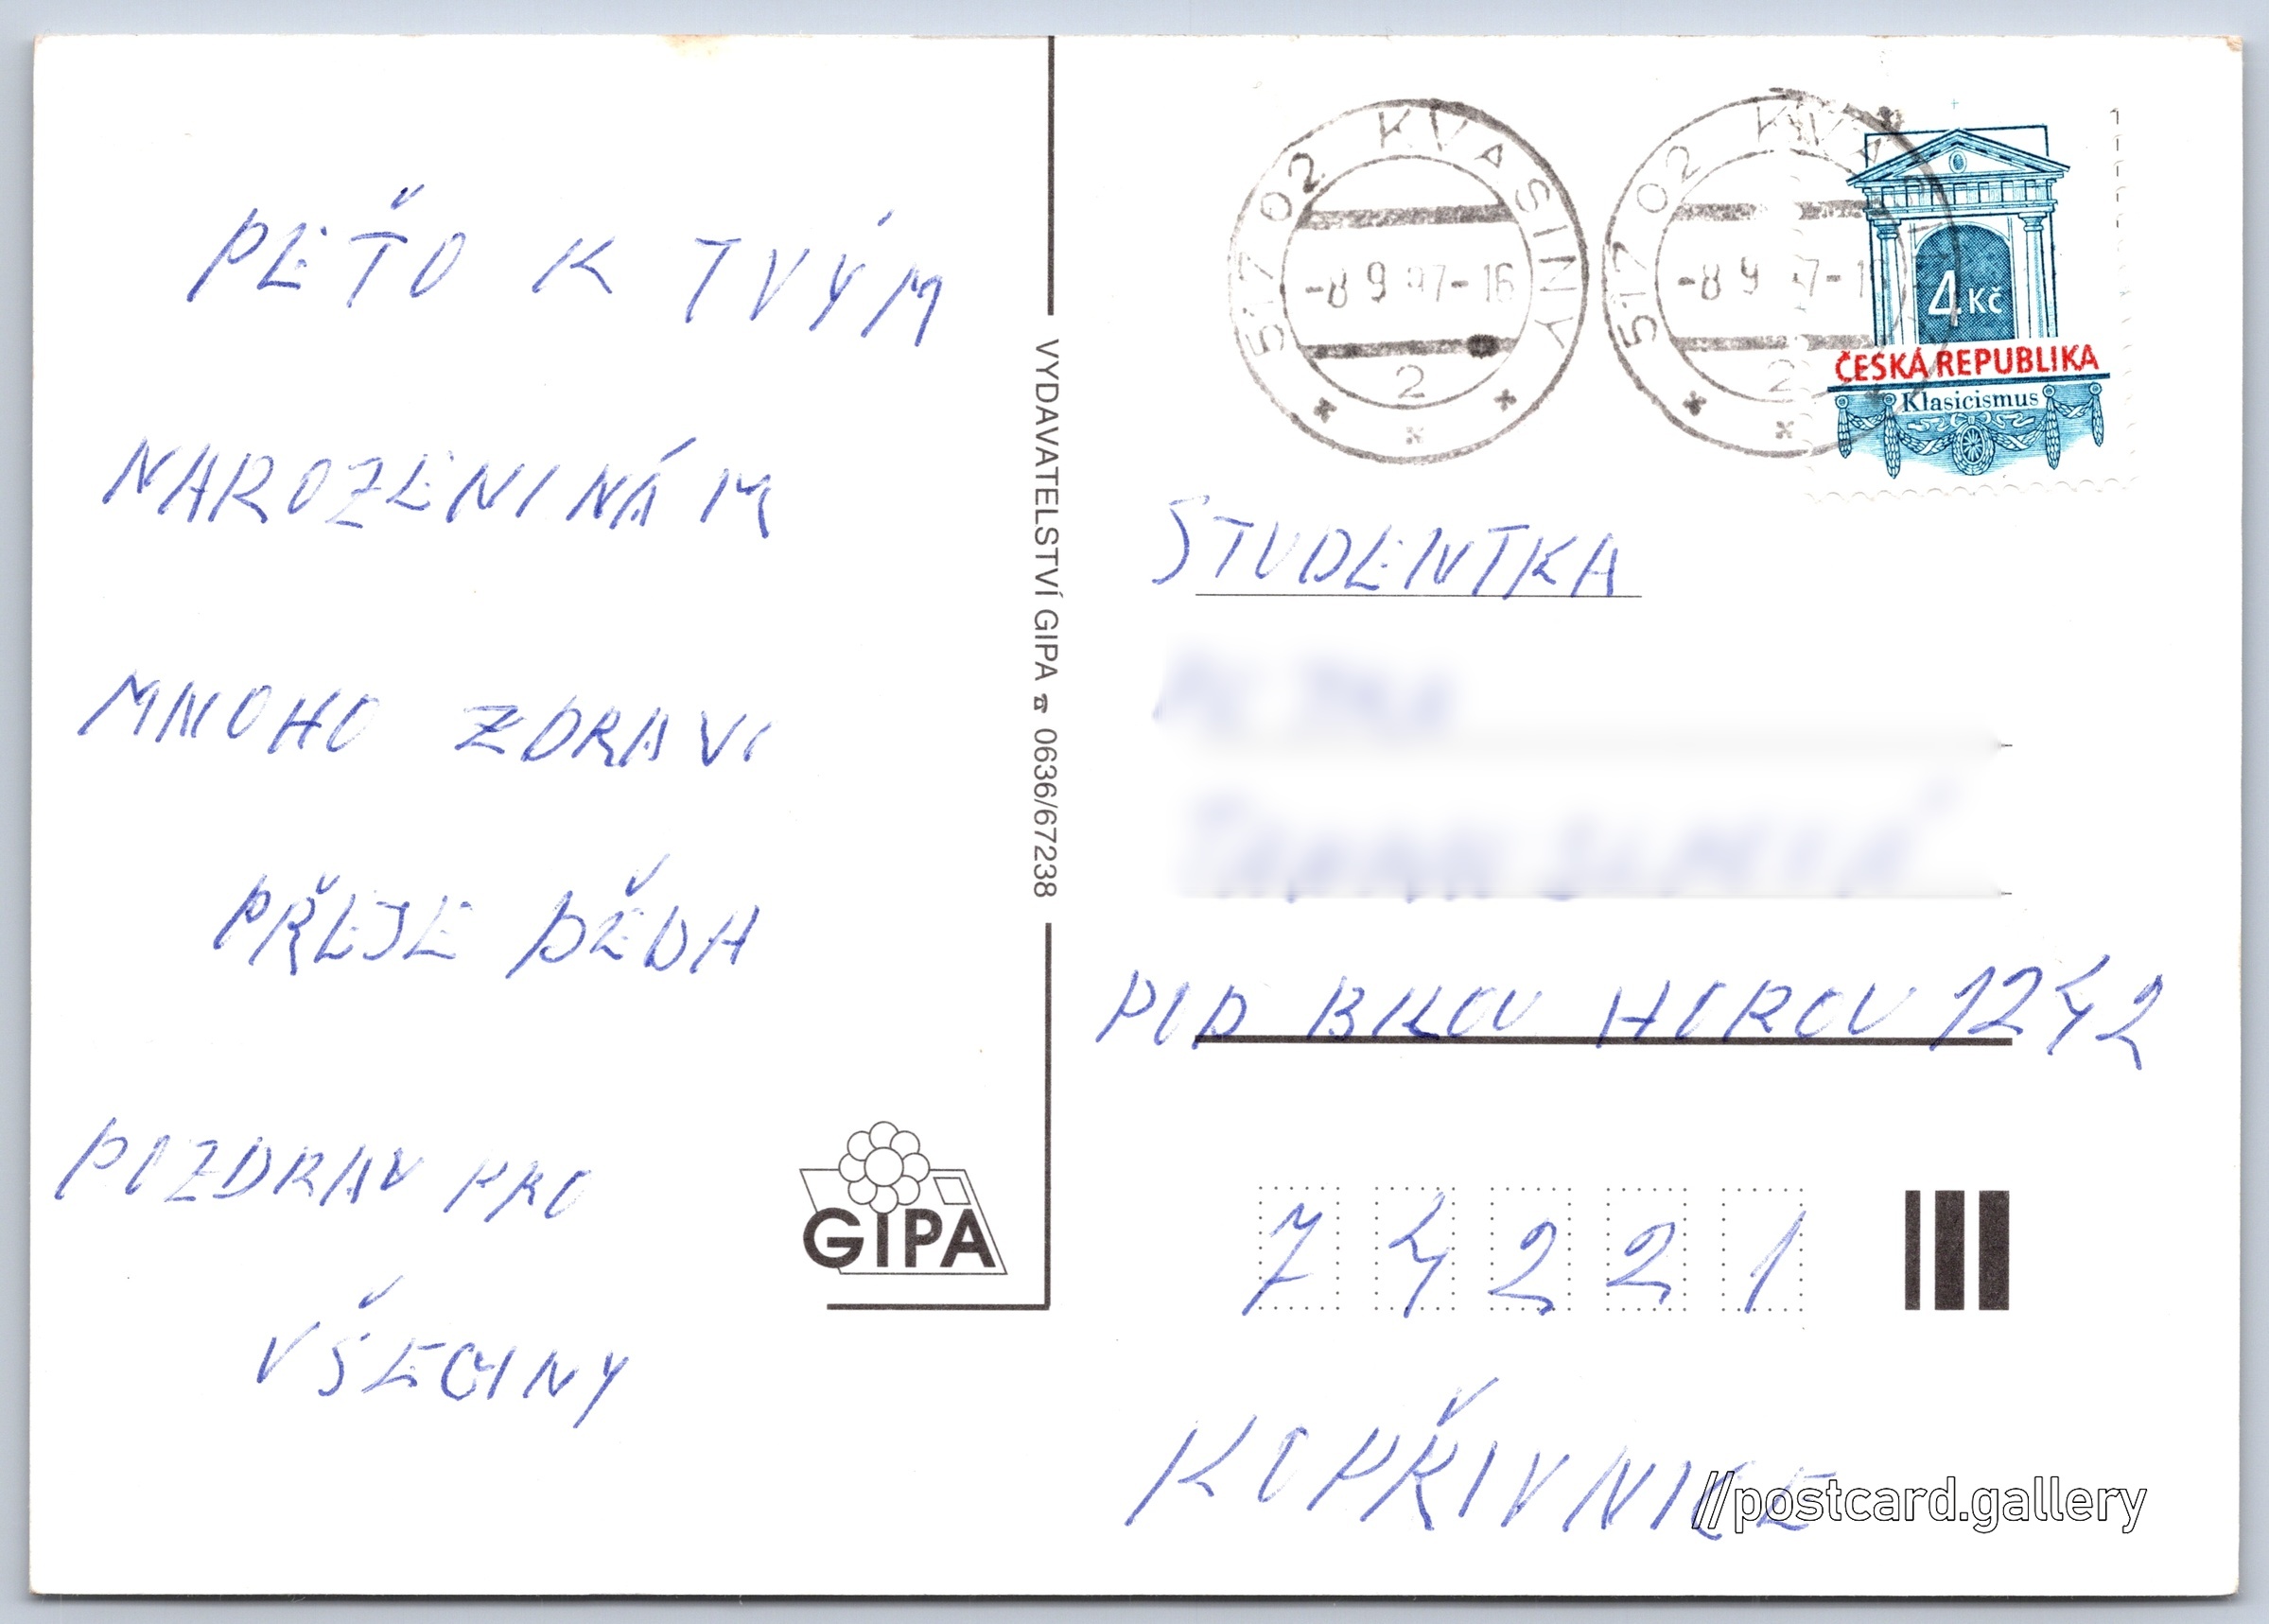 PEŤO K TVÝM
NAROZENINÁM
MNOHO ZDRAVI
PŘEJE DĚDA
POZDRAV PRO
VŠECHNY
VYDAVATELSTVÍ GIPA ☎ 0636/67238
GIPA
517 02 KVASINY
-8 9 97-16
2
517 02 KVASINY
-8 9 97-16
2
4 Kč
ČESKÁ REPUBLIKA
Klasicismus
STUDENTKA
POD BILOU HOROU 1242
74221
KOPŘIVNICE
//postcard.gallery